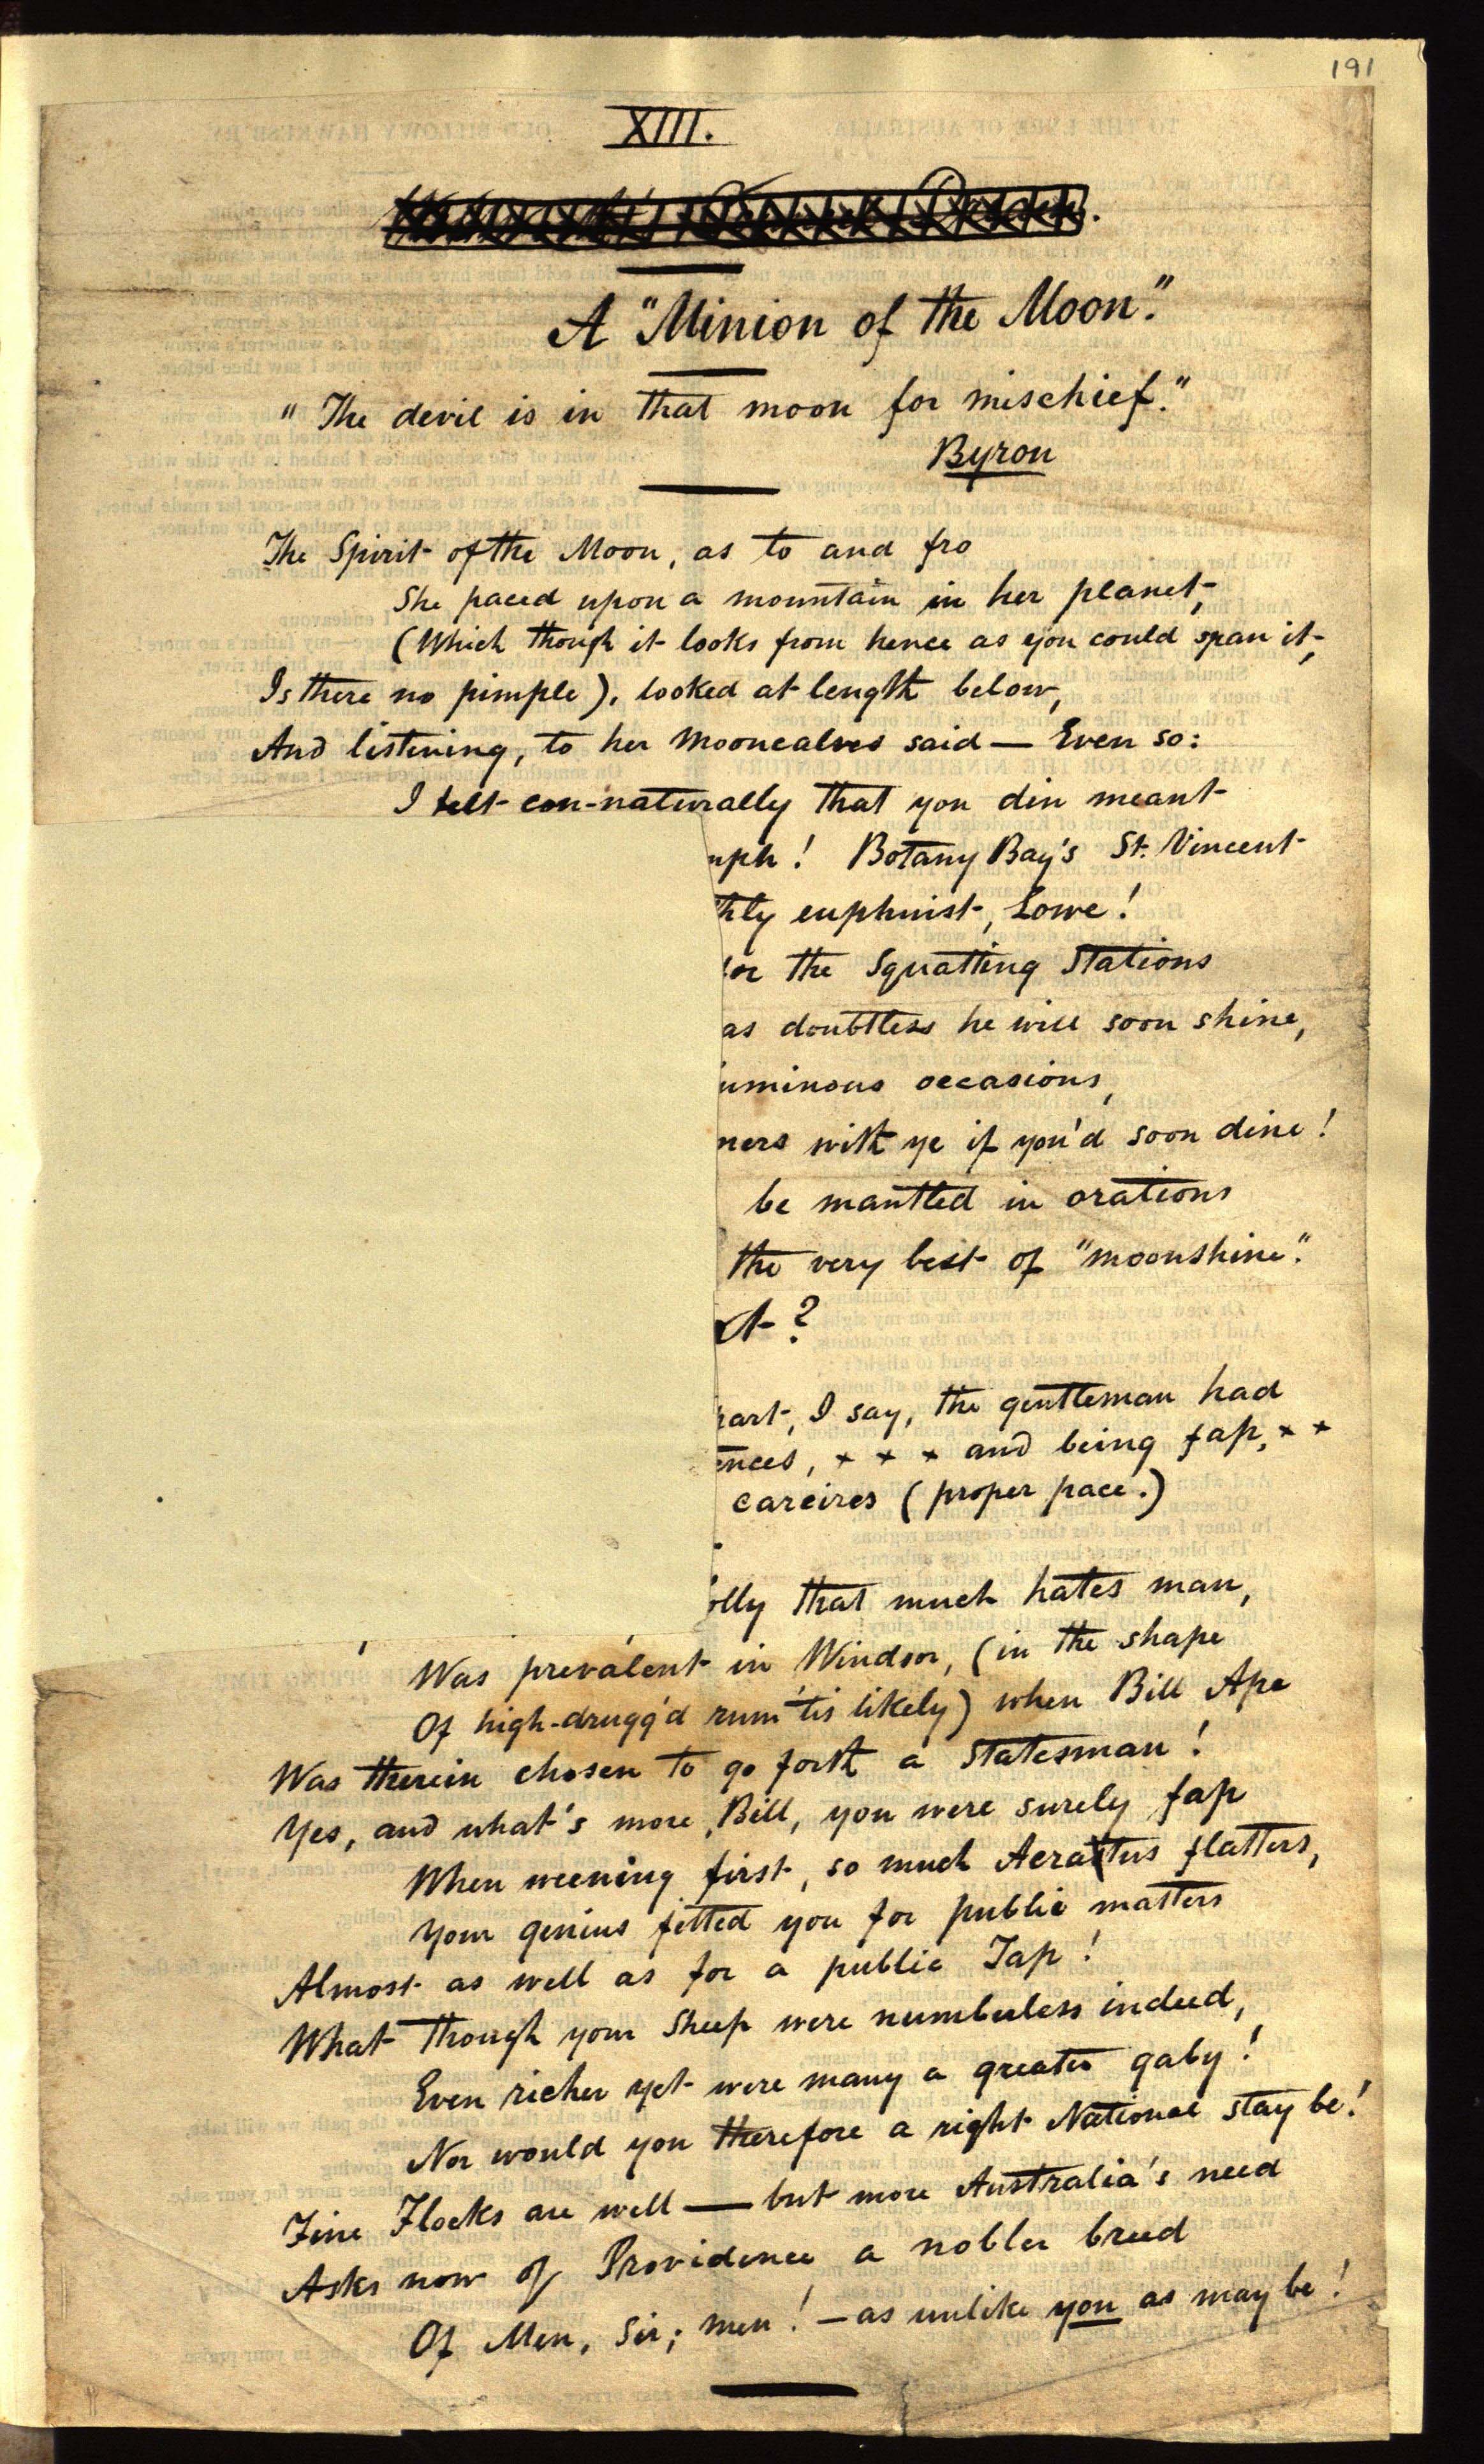 191
XIII.
A "Minion of the Moon."
"The devil is in that moon for mischief."
Byron
The Spirit of the Moon, as to and fro
She paced upon a mountain in her planet,
(Which though it looks from hence as you could span it,
Is there no pimple), looked at length below,
And listening, to her Mooncalves said — Even so:
I felt con-naturally that yon din meant
mph! Botany Bay's St. Vincent
hty euphuist, Lowe!
for the Squatting Stations
as doubtless he will soon shine,
uminous occasions,
ners with ye if you'd soon dine!
be mantled in orations
the very best of "moonshine."
ct?
part, I say, the gentleman had
ences, x x x and being fap, x x
careires (proper pace.)
olly that much hates man,
Was prevalent in Windsor, (in the shape
Of high-drugg'd rum 'tis likely) when Bill Ape
Was therein chosen to go forth a Statesman!
Yes, and what's more, Bill, you were surely fap
When weening first, so much Aeratus flatters,
Your genius fitted you for public matters
Almost as well as for a public Tap!
What though your Sheep were numberless indeed,
Even richer yet were many a greater gaby!
Nor would you therefore a right National stay be!
Fine Flocks are well — but more Australia's need
Asks now of Providence a nobler breed
Of Men, Sir; men! — as unlike you as may be!